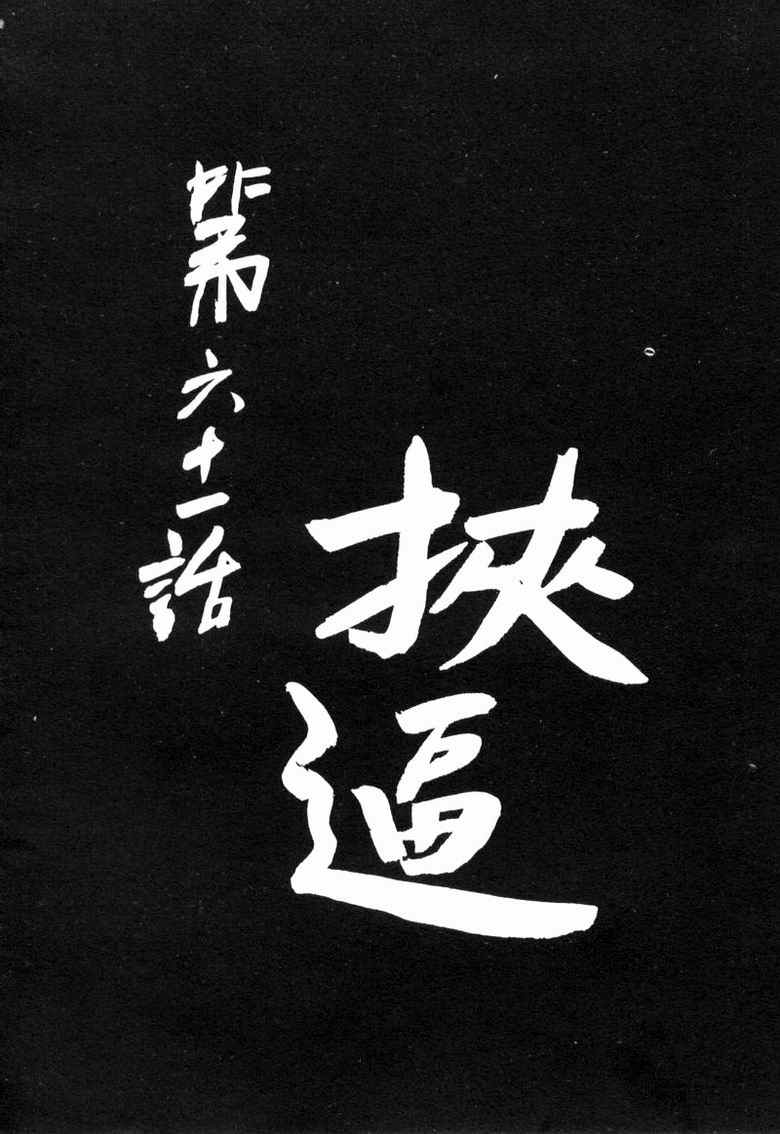 挾逼
第六十一話